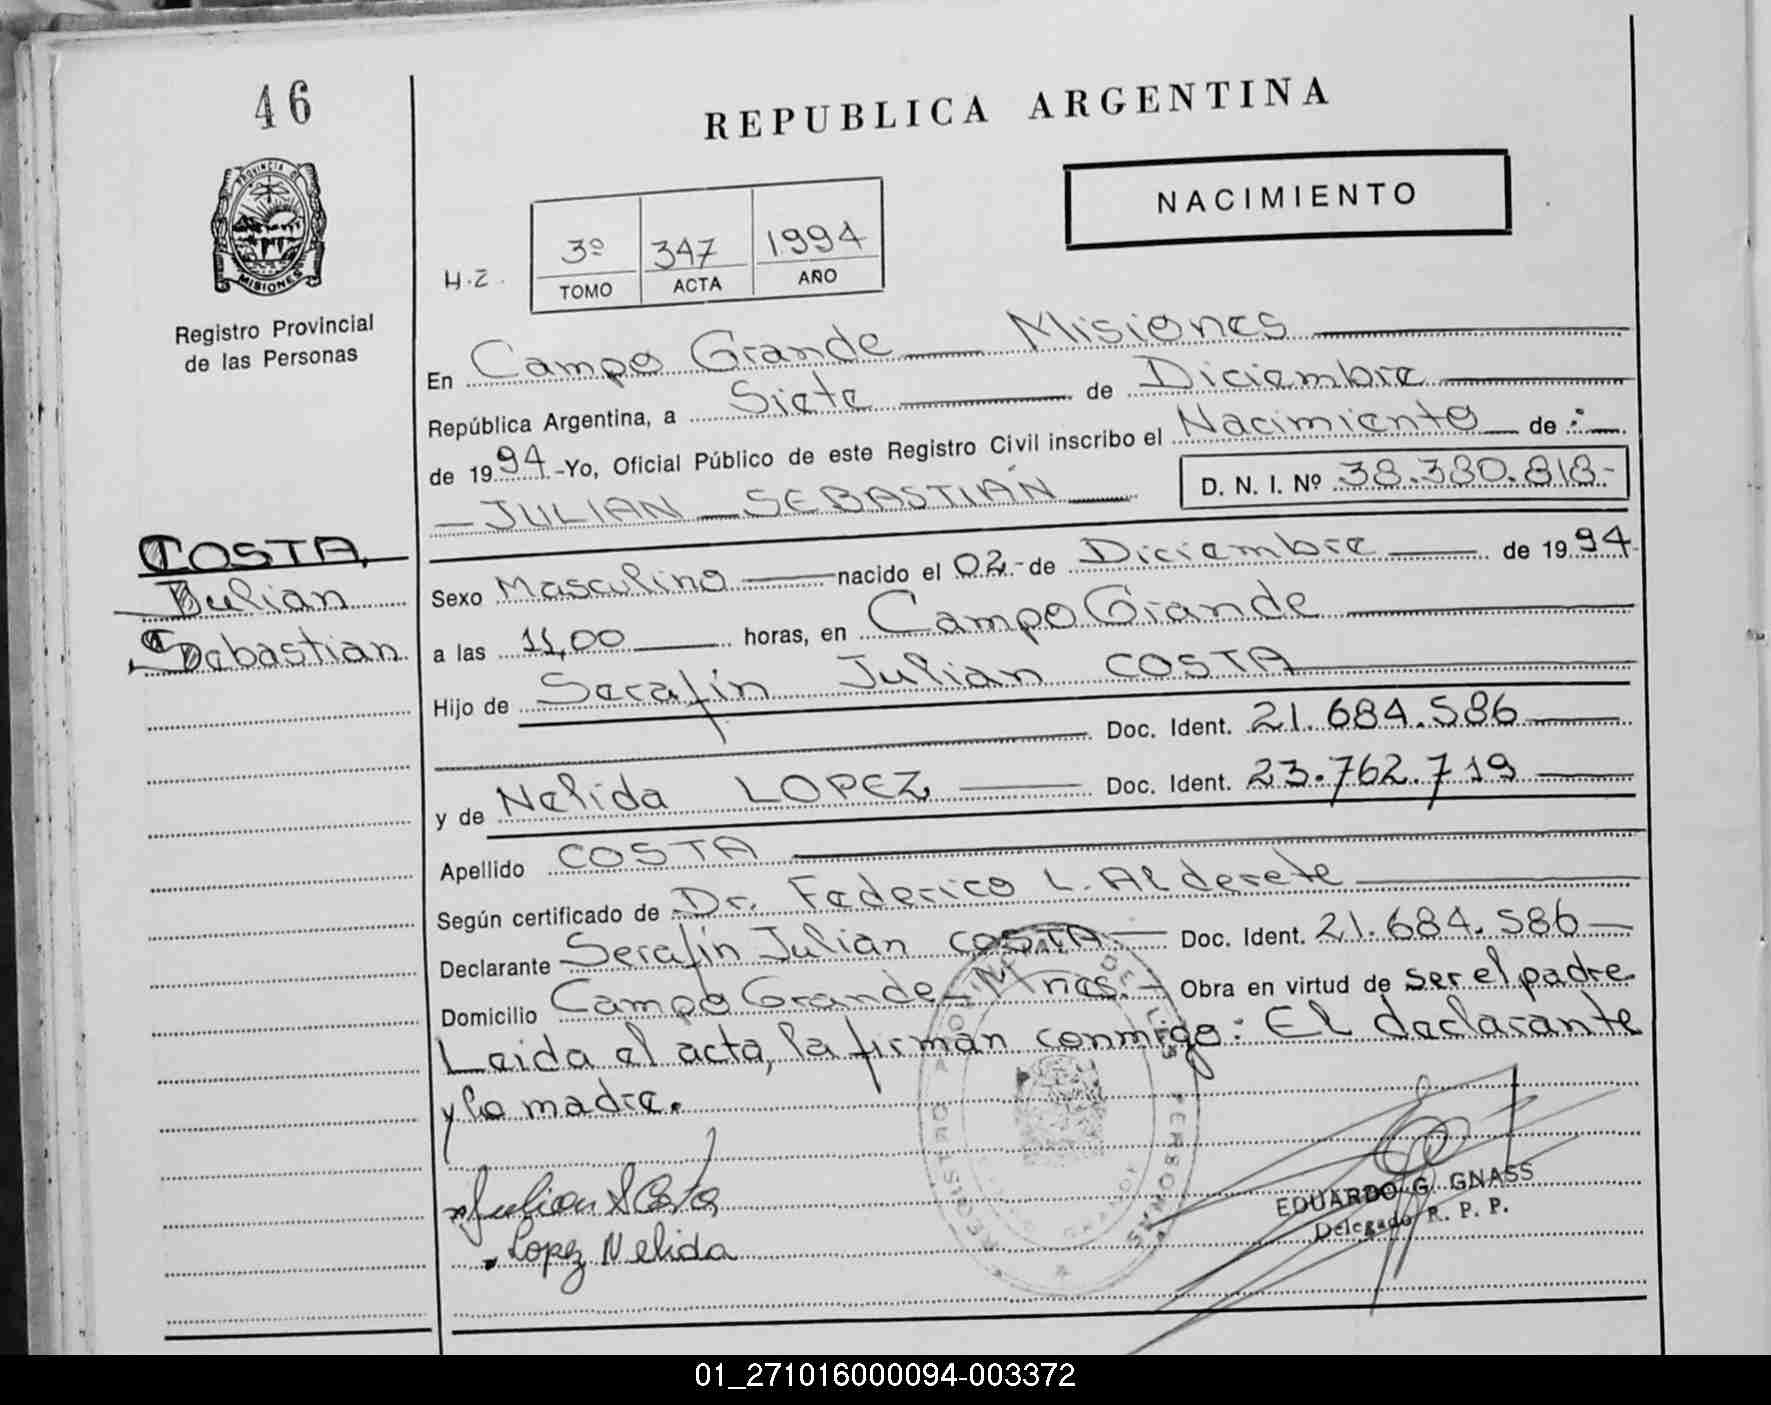 46
REPUBLICA ARGENTINA
PROVINCIA DE
MISIONES
NACIMIENTO
H.2.
3º 347 1994
TOMO ACTA AÑO
Registro Provincial
de las Personas
En Campo Grande Misiones
República Argentina, a Siete de Diciembre
de 1994.-Yo, Oficial Público de este Registro Civil inscribo el Nacimiento de :
JULIAN SEBASTIÁN
D. N. I. Nº 38.380.818-
COSTA,
Julian
Sebastian
Sexo Masculino nacido el 02- de Diciembre de 1994
a las 11,00 horas, en Campo Grande
Hijo de Serafín Julian COSTA
Doc. Ident. 21.684.586
y de Nelida LOPEZ Doc. Ident. 23.762.719
Apellido COSTA
Según certificado de Dr. Federico L. Alderete
Declarante Serafín Julian COSTA Doc. Ident. 21.684.586
Domicilio Campo Grande - Mnes. Obra en virtud de ser el padre.
Leida el acta, la firman conmigo: El declarante
y la madre.
Julian S Costa
Lopez Nelida
EDUARDO G. GNASS
Delegado R. P. P.
01_271016000094-003372